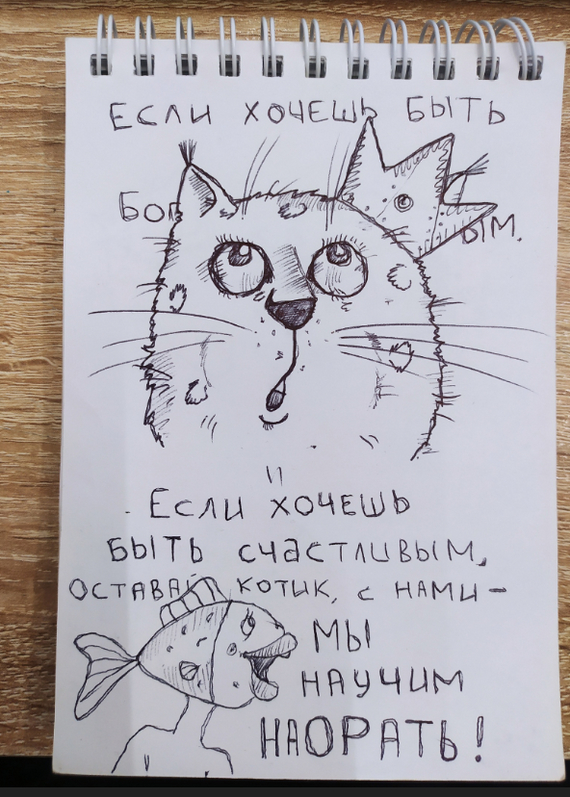 ЕСЛИ ХОЧЕШЬ БЫТЬ
БОГ ЫМ.
ЕСЛИ ХОЧЕШЬ
БЫТЬ СЧАСТЛИВЫМ,
ОСТАВАЙ КОТИК, С НАМИ-
МЫ
НАУЧИМ
НАОРАТЬ!